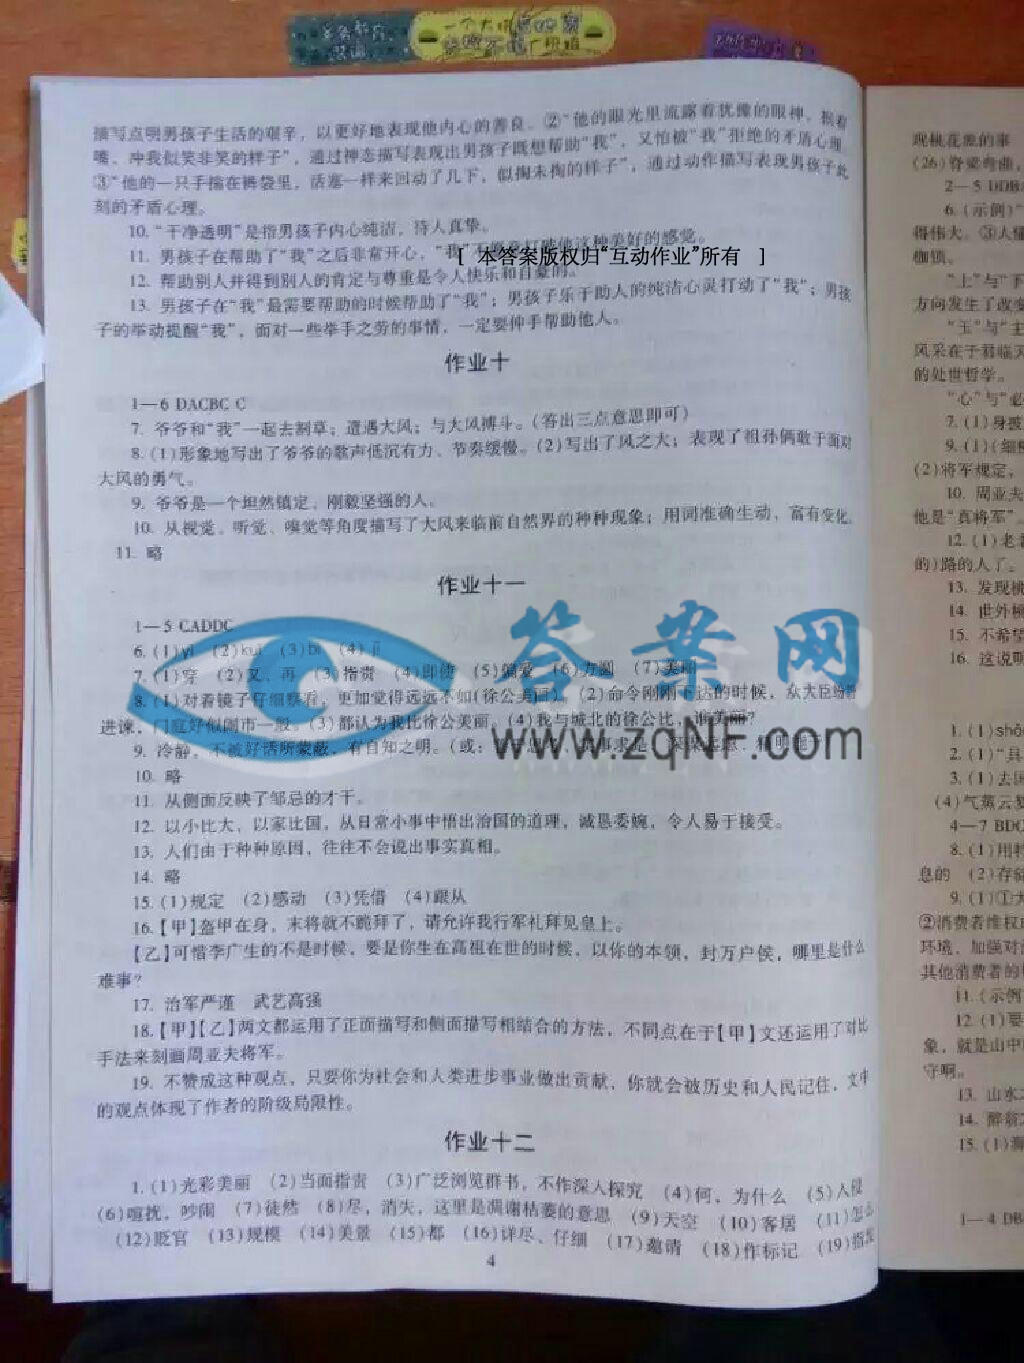 描写点明男孩子生活的艰辛，以更好地表现他内心的善良。②“他的眼光里流露着犹豫的眼神，抿着
嘴，冲我似笑非笑的样子”，通过神态描写表现出男孩子既想帮助“我”，又怕被“我”拒绝的矛盾心理
③“他的一只手揣在裤袋里，活塞一样来回动了几下，似掏未掏的样子”，通过动作描写表现男孩子此
刻的矛盾心理。
10. “干净透明”是指男孩子内心纯洁，待人真挚。
11. 男孩子在帮助了“我”之后非常开心，“我”这种美好的感觉。
[ 本答案版权归“互动作业”所有 ]
12. 帮助别人并得到别人的肯定与尊重是令人快乐和自豪的。
13. 男孩子在“我”最需要帮助的时候帮助了“我”；男孩子乐于助人的纯洁心灵打动了“我”；男孩
子的举动提醒“我”，面对一些举手之劳的事情，一定要伸手帮助他人。
作业十
1—6 DACBC C
7. 爷爷和“我”一起去割草；遭遇大风；与大风搏斗。（答出三点意思即可）
8. (1)形象地写出了爷爷的歌声低沉有力、节奏缓慢。(2)写出了风之大；表现了祖孙俩敢于面对
大风的勇气。
9. 爷爷是一个坦然镇定、刚毅坚强的人。
10. 从视觉、听觉、嗅觉等角度描写了大风来临前自然界的种种现象；用词准确生动，富有变化。
11. 略
作业十一
1—5 CADDC
6. (1)yì (2)kuī (3)bì (4)jī
7. (1)穿 (2)又，再 (3)指责 (4)即使 (5)偏爱 (6)方圆 (7)美丽
8. (1)对着镜子仔细察看，更加觉得远远不如(徐公美丽)。 (2)命令刚刚下达的时候，众大臣纷纷
进谏，门庭好似闹市一般。(3)都认为我比徐公美丽。(4)我与城北的徐公比，谁美丽？
9. 冷静，不被好话所蒙蔽，有自知之明。
答案网
www.zqnf.com
10. 略
11. 从侧面反映了邹忌的才干。
12. 以小比大，以家比国，从日常小事中悟出治国的道理，诚恳委婉，令人易于接受。
13. 人们由于种种原因，往往不会说出事实真相。
14. 略
15. (1)规定 (2)感动 (3)凭借 (4)跟从
16.【甲】盔甲在身，末将就不跪拜了，请允许我行军礼拜见皇上。
【乙】可惜李广生的不是时候，要是你生在高祖在世的时候，以你的本领，封万户侯，哪里是什么
难事？
17. 治军严谨 武艺高强
18.【甲】【乙】两文都运用了正面描写和侧面描写相结合的方法，不同点在于【甲】文还运用了对比
手法来刻画周亚夫将军。
19. 不赞成这种观点，只要你为社会和人类进步事业做出贡献，你就会被历史和人民记住，文中
的观点体现了作者的阶级局限性。
作业十二
1. (1)光彩美丽 (2)当面指责 (3)广泛浏览群书，不作深入探究 (4)何，为什么 (5)入侵
(6)喧扰，吵闹 (7)徒然 (8)尽，消失，这里是凋谢枯萎的意思 (9)天空 (10)客居 (11)怎么
(12)贬官 (13)规模 (14)美景 (15)都 (16)详尽、仔细 (17)邀请 (18)作标记 (19)指
4
现桃花源的事
(26)脊梁弯曲，
2—5 DDB
6. (示例)“
得伟大。③人
枷锁。
“上”与“下
方向发生了改变
“玉”与“主
风采在于君临天
的处世哲学。
“心”与“必
7. (1)身披
9. (1)(细柳
(2)将军规定，
10. 周亚夫
他是“真将军”。
12. (1)老
的)路的人了。
13. 发现桃
14. 世外桃
15. 不希望
16. 这说明
1. (1)shuò
2. (1)“具
3. (1)去国
(4)气蒸云梦
4—7 BDQ
8. (1)用
息的 (2)存
9. (1)①大
②消费者维权
环境，加强对
其他消费者的
11. (示例
12 (1)要
象，就是山中
守啊。
13. 山水
14. 醉翁
15. (1)
1—4 DB